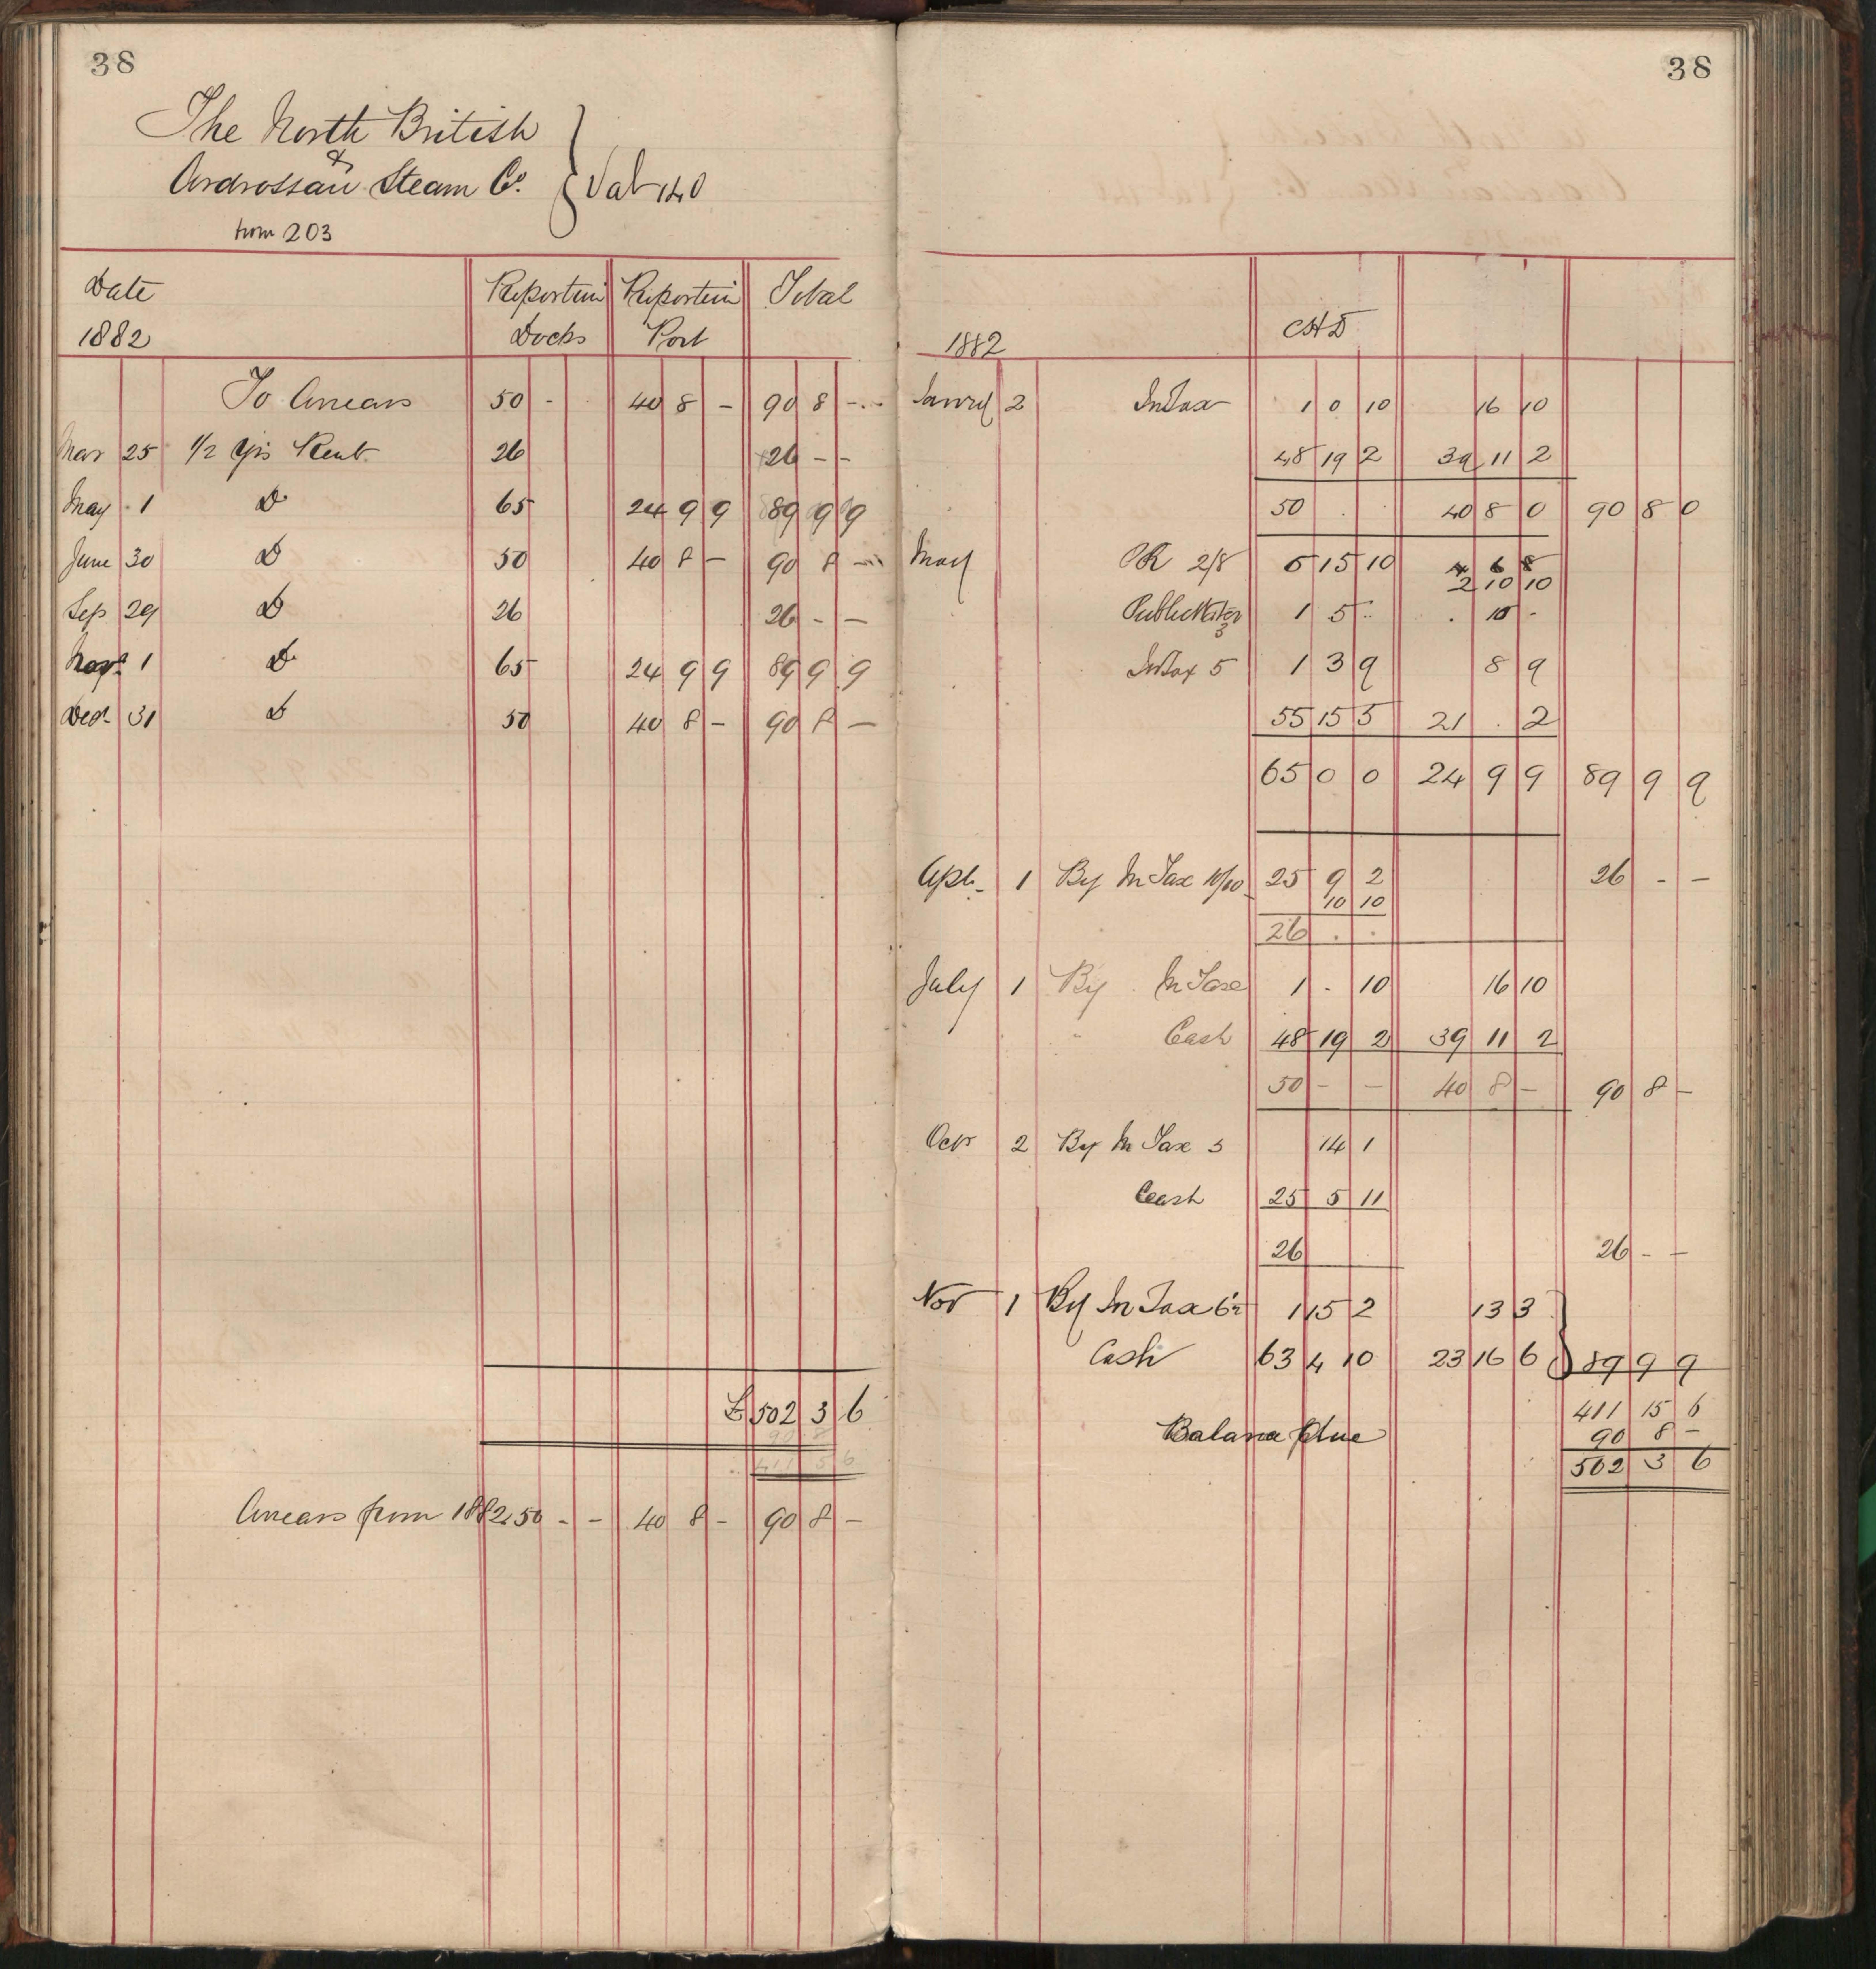 38
The North British
&
Ardrossan Steam Co.
Val 140
from 203
Date
1882
Proportn Docks
Proportn Port
Total
To Arrears 50 - 40 8 - 90 8 -
Mar 25 1/2 yrs Rent 26 26 - -
May 1 Do 65 24 9 9 89 9 9
June 30 Do 50 40 8 - 90 8 -
Sep 29 Do 26 26 - -
Nov 1 Do 65 24 9 9 89 9 9
Dec 31 Do 50 40 8 - 90 8 -
£ 502 3 6
90 8
411 5 6
Arrears from 1882 50 - - 40 8 - 90 8 -
38
1882
Janry 2 InTax 1 0 10 16 10
48 19 2 39 11 2
50 . . 40 8 0 90 8 0
May PR 2/8 6 15 10 4 6 8
2 10 10
Public Water 3 1 5 . . 10 -
InTax 5 1 3 9 8 9
55 15 5 21 . 2
65 0 0 24 9 9 89 9 9
Apl 1 By In Tax 10/10 25 9 2 26 - -
10 10
26 . .
July 1 By In Taxe 1 - 10 16 10
" Cash 48 19 2 39 11 2
50 - - 40 8 - 90 8 -
Oct 2 By In Tax 5 14 1
Cash 25 5 11
26 26 - -
Nov 1 By In Tax 6½ 1 15 2 13 3
Cash 63 4 10 23 16 6 89 9 9
411 15 6
Balance Due 90 8 -
502 3 6